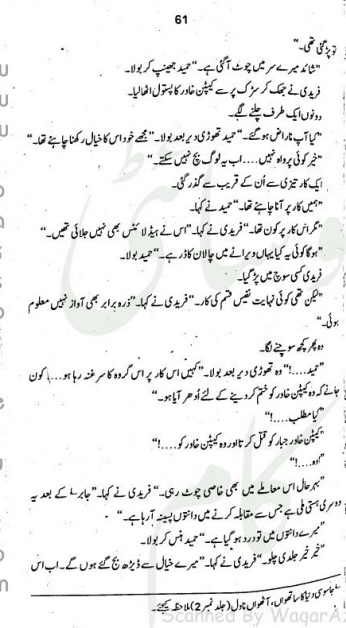 61
تو پڑ گئی تھی۔“
”شائد میرے سر میں چوٹ آگئی ہے۔“ حمید جھینپ کر بولا۔
فریدی نے جھک کر سڑک پر سے کیپٹن خاور کا پستول اٹھالیا۔
دونوں ایک طرف چلنے لگے۔
”کیا آپ ناراض ہوگئے۔“ حمید تھوڑی دیر بعد بولا۔ ”مجھے خود اس کا خیال رکھنا چاہئے تھا۔“
”خیر کوئی پرواہ نہیں.... اب یہ لوگ بچ نہیں سکتے۔“
ایک کار تیزی سے اُن کے قریب سے گذر گئی۔
”ہمیں کار پر آنا چاہئے تھا۔“ حمید نے کہا۔
”مگر اس کار پر کون تھا۔“ فریدی نے کہا۔ ”اس نے ہیڈ لائٹس بھی نہیں جلائی تھیں۔“
”ہوگا کوئی یہ کیا یہاں ویرانے میں چالان کا ڈر ہے۔“ حمید بولا۔
فریدی کسی سوچ میں پڑ گیا۔
”لیکن تھی کوئی نہایت نفیس قسم کی کار۔“ فریدی نے کہا۔ ”ذرہ برابر بھی آواز نہیں معلوم
ہوئی۔“
وہ پھر کچھ سوچنے لگا۔
”حمید....!“ وہ تھوڑی دیر بعد بولا۔ ”کہیں اس کار پر اس گروہ کا سرغنہ نہ رہا ہو.... کون
جانے کہ وہ کیپٹن خاور کو ختم کردینے کے لئے اُدھر آیا ہو۔“
”کیا مطلب....!“
”کیپٹن خاور جبار کو قتل کرتا اور وہ کیپٹن خاور کو....!“
”اوہ....!“
”بہرحال اس معاملے میں بھی خاصی چوٹ رہی۔“ فریدی نے کہا۔ ”جابر کے بعد یہ
دوسری ہستی ملی ہے جس سے مقابلہ کرنے میں دانتوں پسینہ آرہا ہے۔“
”میرے دانتوں میں تو درد ہوگیا ہے۔“ حمید ہنس کر بولا۔
”خیر خیر جلدی چلو۔“ فریدی نے کہا۔ ”میرے خیال سے ڈیڑھ بج گئے ہوں گے۔ اب اس
جاسوسی دنیا کا ساتھواں، آٹھواں ناول (جلد نمبر 2) ملاحظہ کیجئے۔
Scanned By WaqarAz